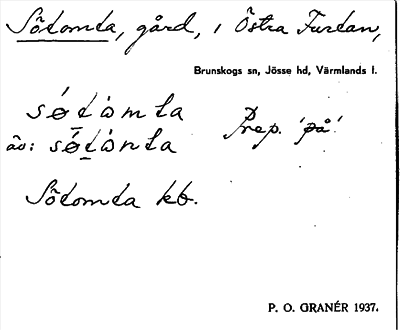 Sötomta, gård, i Östra Furtan,
Brunskogs sn, Jösse hd, Värmlands l.
Prep. 'på'
äv:
Sötomta kb.
P. O. GRANÉR 1937.